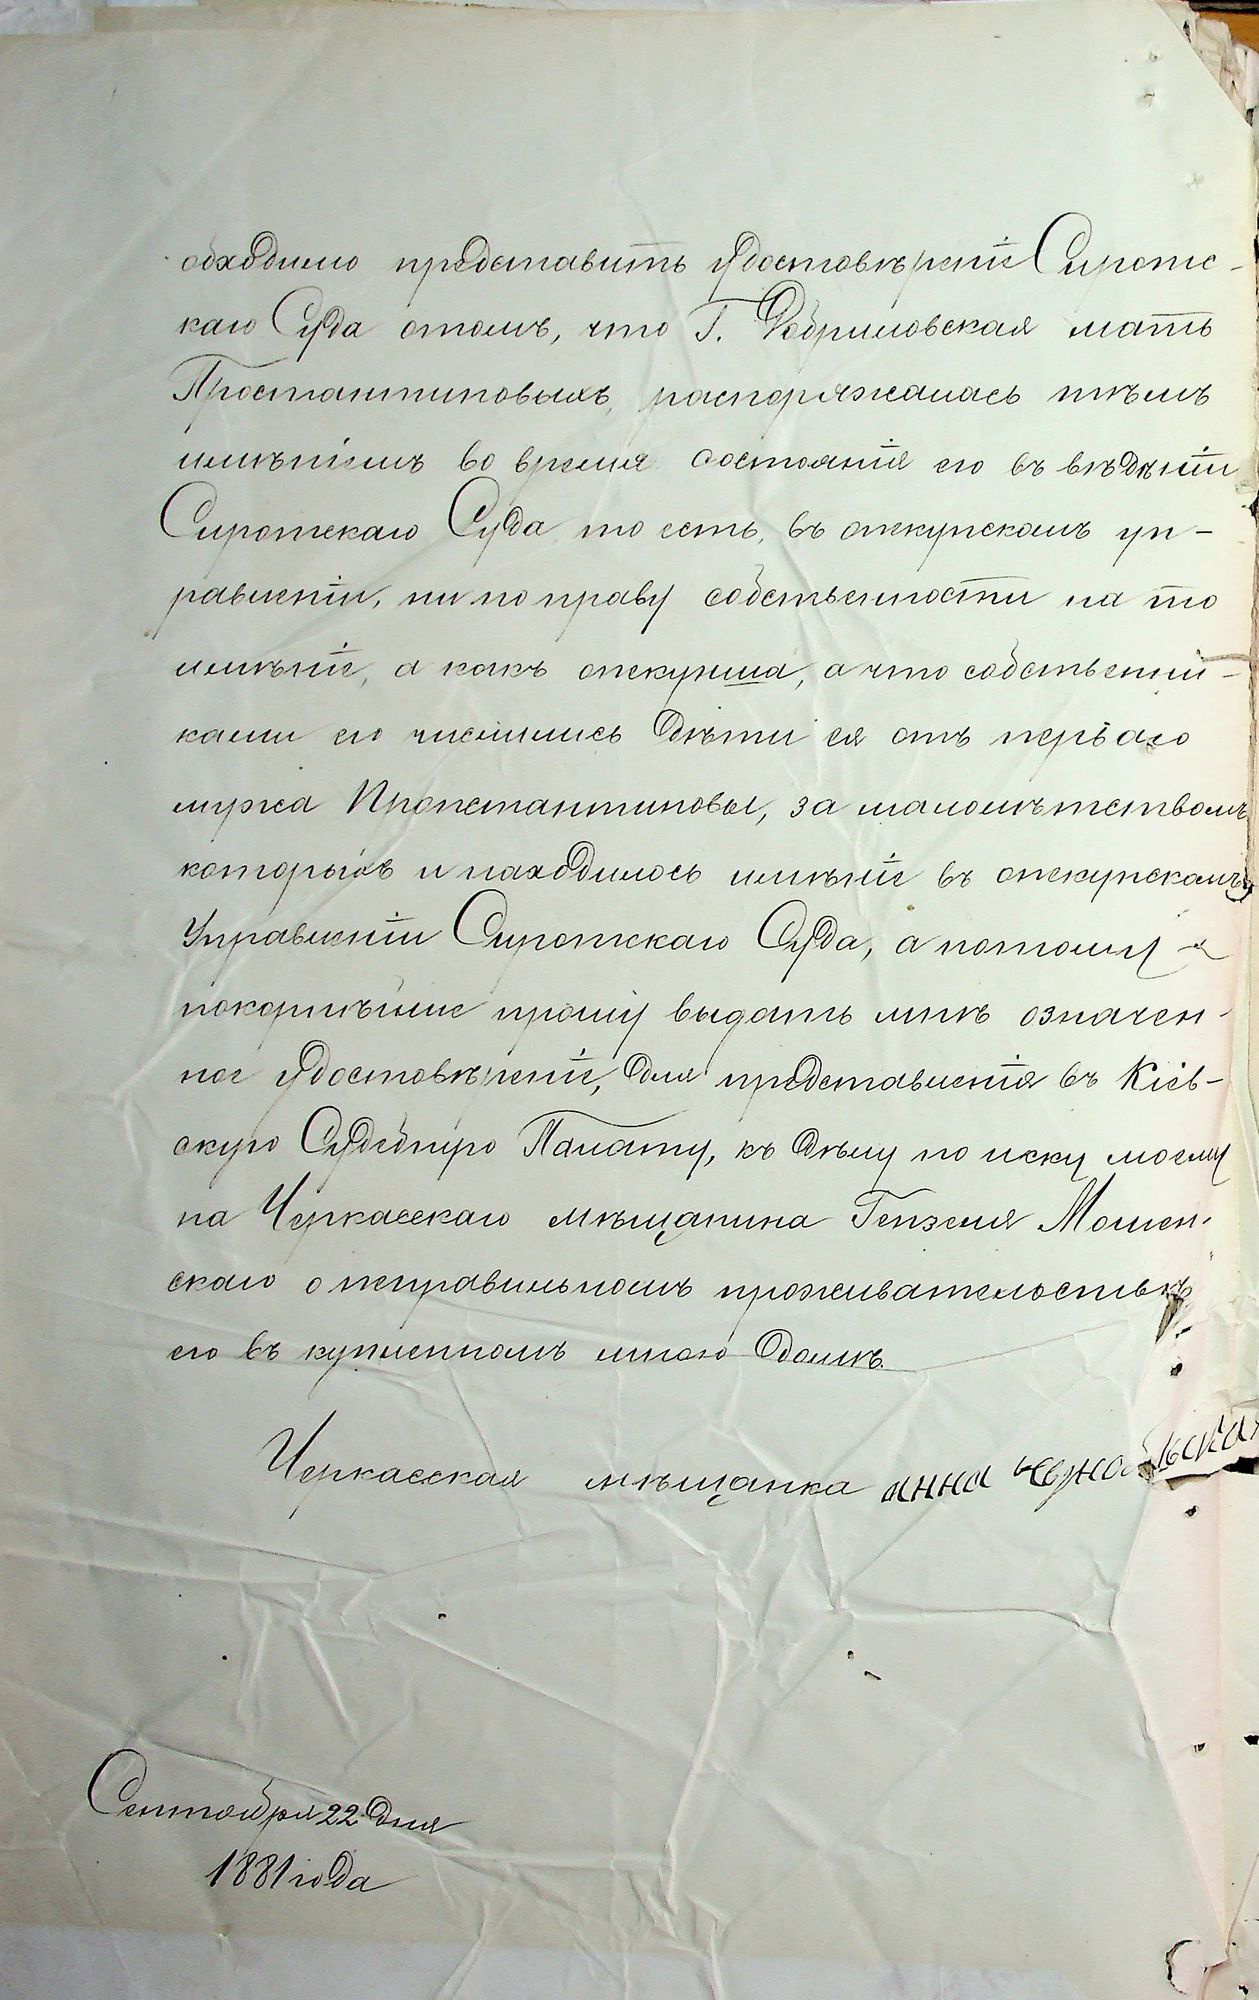 обходимо представить удостовѣреніе Сиротс-
каго Суда отомъ, что Г. Добриловская мать
распоряжалась тѣмъ
имѣніемъ во время состоянія его въ вѣдѣніи
Сиротскаго Суда, то есть, въ опекунскомъ уп-
равленіи, ни по праву собственности на то
имѣніе, а какъ опекунша, а что собственни-
ками его числились дѣти ея отъ перваго
мужа за малолѣтствомъ
которыхъ и находилось имѣніе въ опекунскомъ
Управленіи Сиротскаго Суда, а потому
покорнѣйше прошу выдать мнѣ означен-
ное удостовѣреніе, для представленія въ Кіев-
скую Судебную Палату, къ дѣлу по иску моему
на Черкасскаго мѣщанина Гензеля Мошен-
скаго о неправильномъ проживательствѣ
его въ купленномъ мною домѣ
Черкасская мѣщанка анна
Сентября 22 дня
1881 года